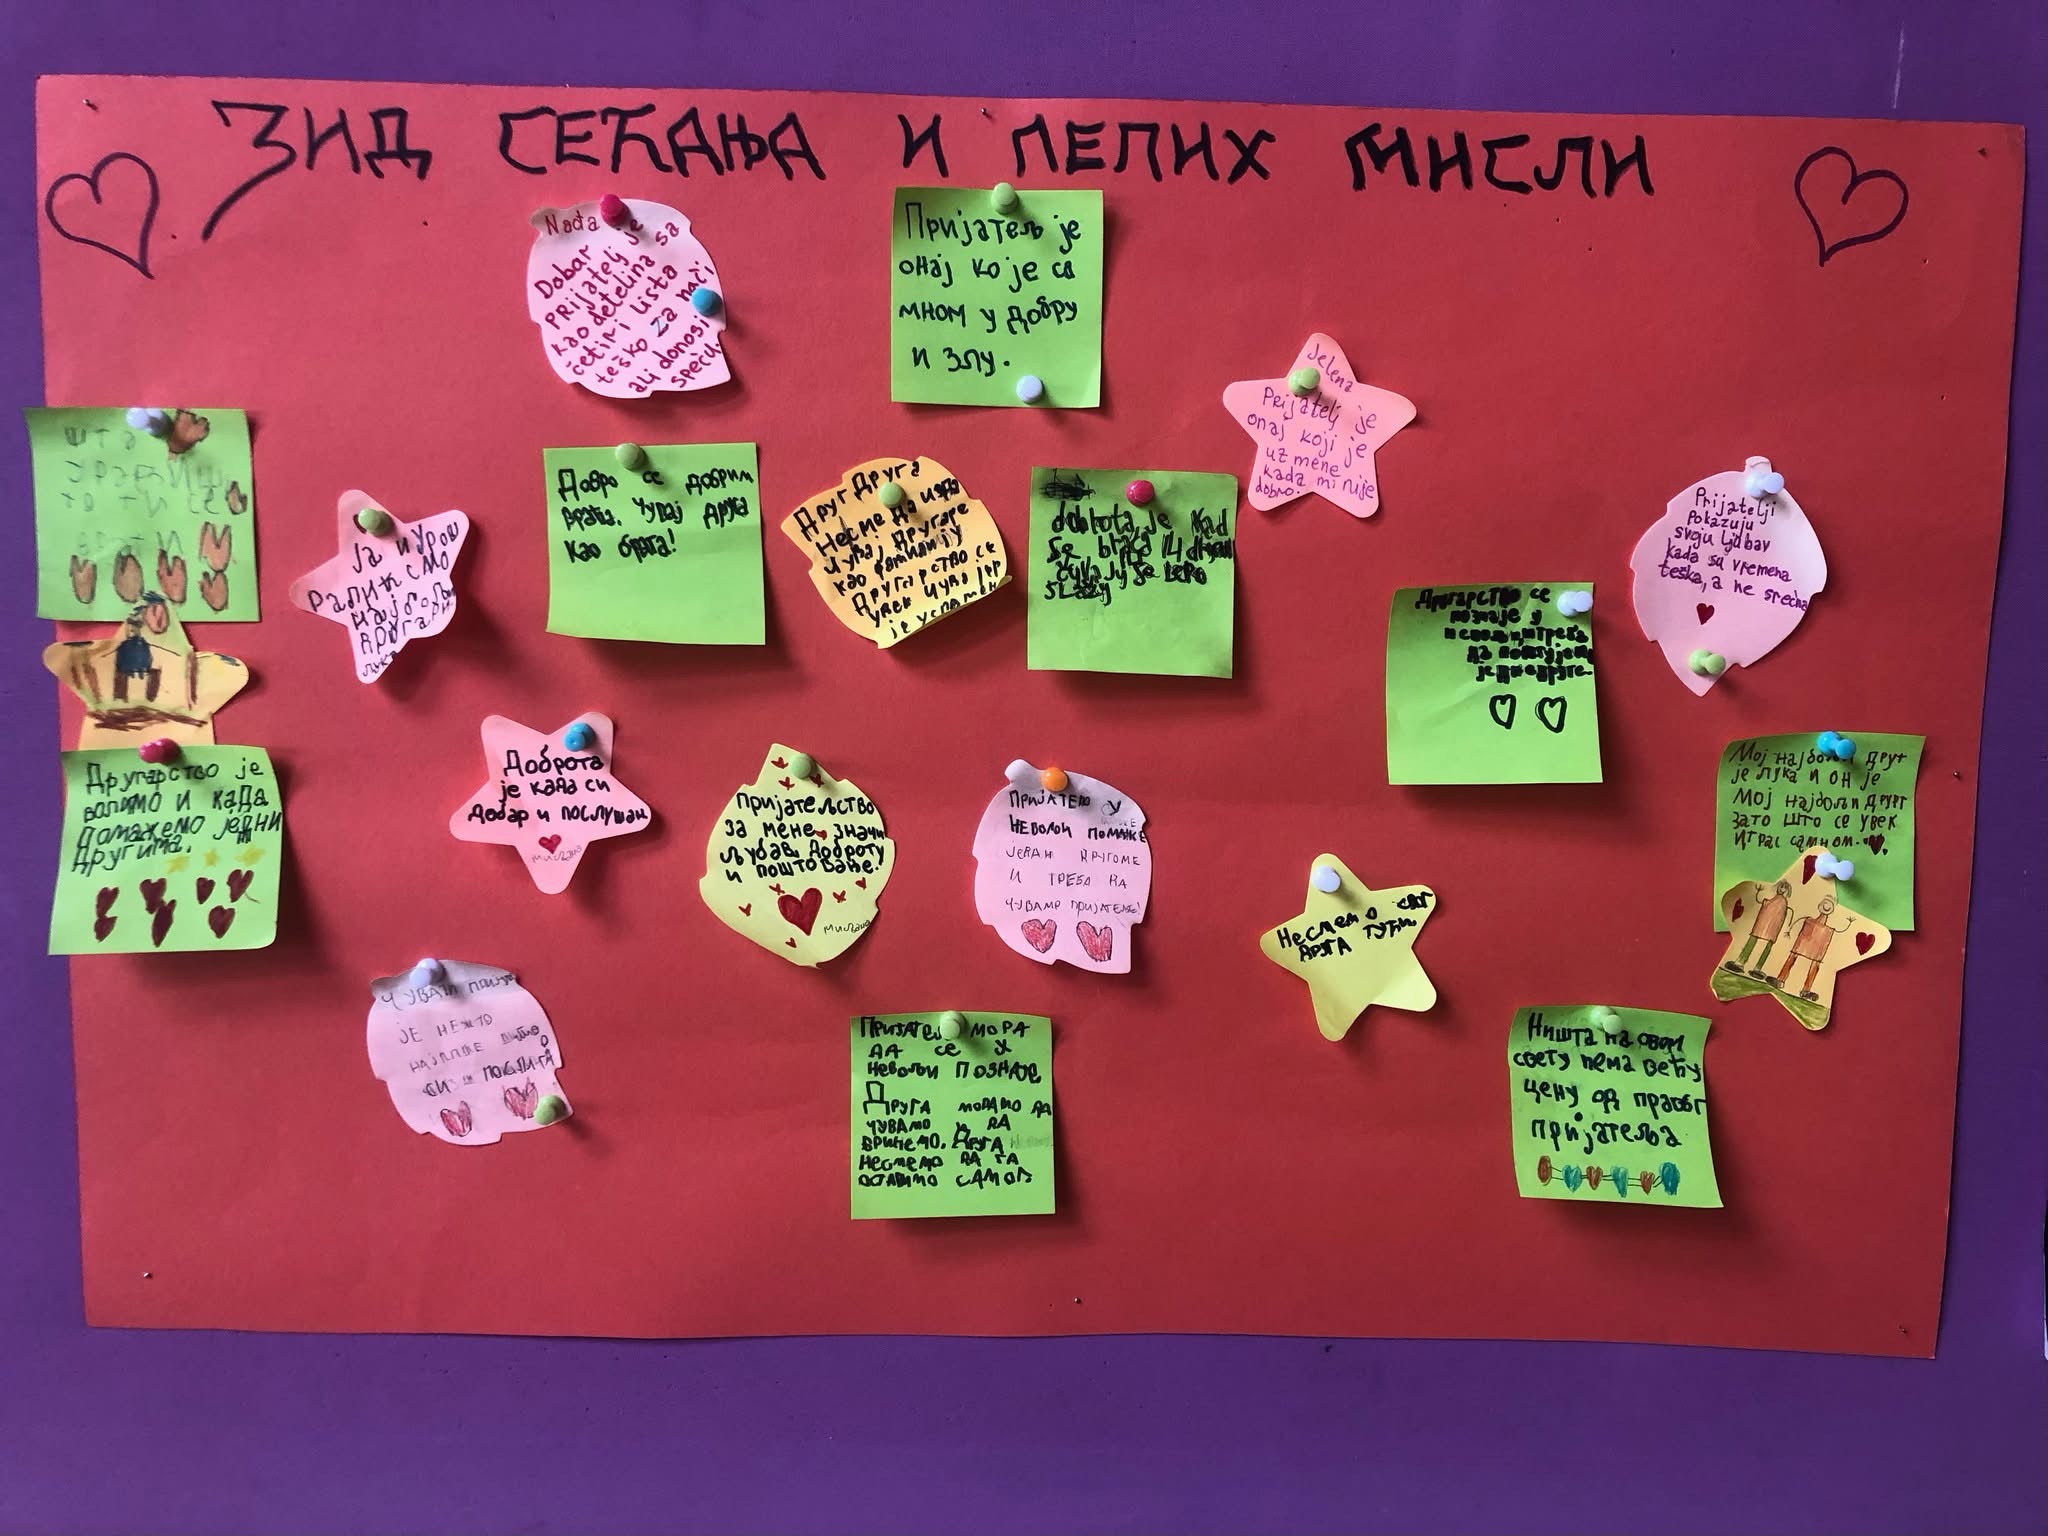 ЗИД СЕЋАЊА И ЛЕПИХ МИСЛИ
Nađa
Dobar
prijatelj je
kao detelina sa
četiri lista
teško za naći
ali donosi
sreću.
Пријатељ је
онај ко је са
мном у добру
и злу.
Jelena
Prijatelj je
onaj koji je
uz mene
kada mi nije
dobro.
шта
урадиш
то ти се
врати
Ја и Урош
Ралић смо
најбољи
другари
Лука
Добро се добрим
враћа. Чувај друга
као брата!
Друг Друга
Несме да изда
Чувај Другаре
као фамилију
Другарство се
увек чува јер
је успомен
dobrota je kad
se braća i drugari
čuvaju se lepo
slažu
Другарство се
познаје у
и треба
да поштујемо
једне друге.
Prijatelji
pokazuju
svoju ljubav
kada su vremena
teška, a ne srećna
Другарство је
волимо и када
помажемо једни
другима.
Доброта
је када си
добар и послушан
Милана
Пријатељство
за мене значи
љубав. Доброту
и поштовање!
Милана
ПРИЈАТЕЉ У
НЕВОЉИ ПОМАЖЕ
ЈЕДАН ДРУГОМЕ
И ТРЕБА ДА
ЧУВАМО ПРИЈАТЕЉЕ!
Несмемо свог
друга тући.
Мој најбољи друг
је Лука и он је
мој најбољи друг
зато што се увек
играс самном.
ЧУВАТИ
ЈЕ НЕШТО
НАЈЛЕПШЕ
СИ
ПРИЈАТЕЉ МОРА
ДА СЕ У
НЕВОЉИ ПОЗНАЈЕ
ДРУГА МОРАМО ДА
ЧУВАМО И ДА
БРИНЕМО. ДРУГА
НЕСМЕМО ДА ГА
ОСТАВИМО САМОГ
Ништа на овом
свету нема већу
цену од правог
пријатеља